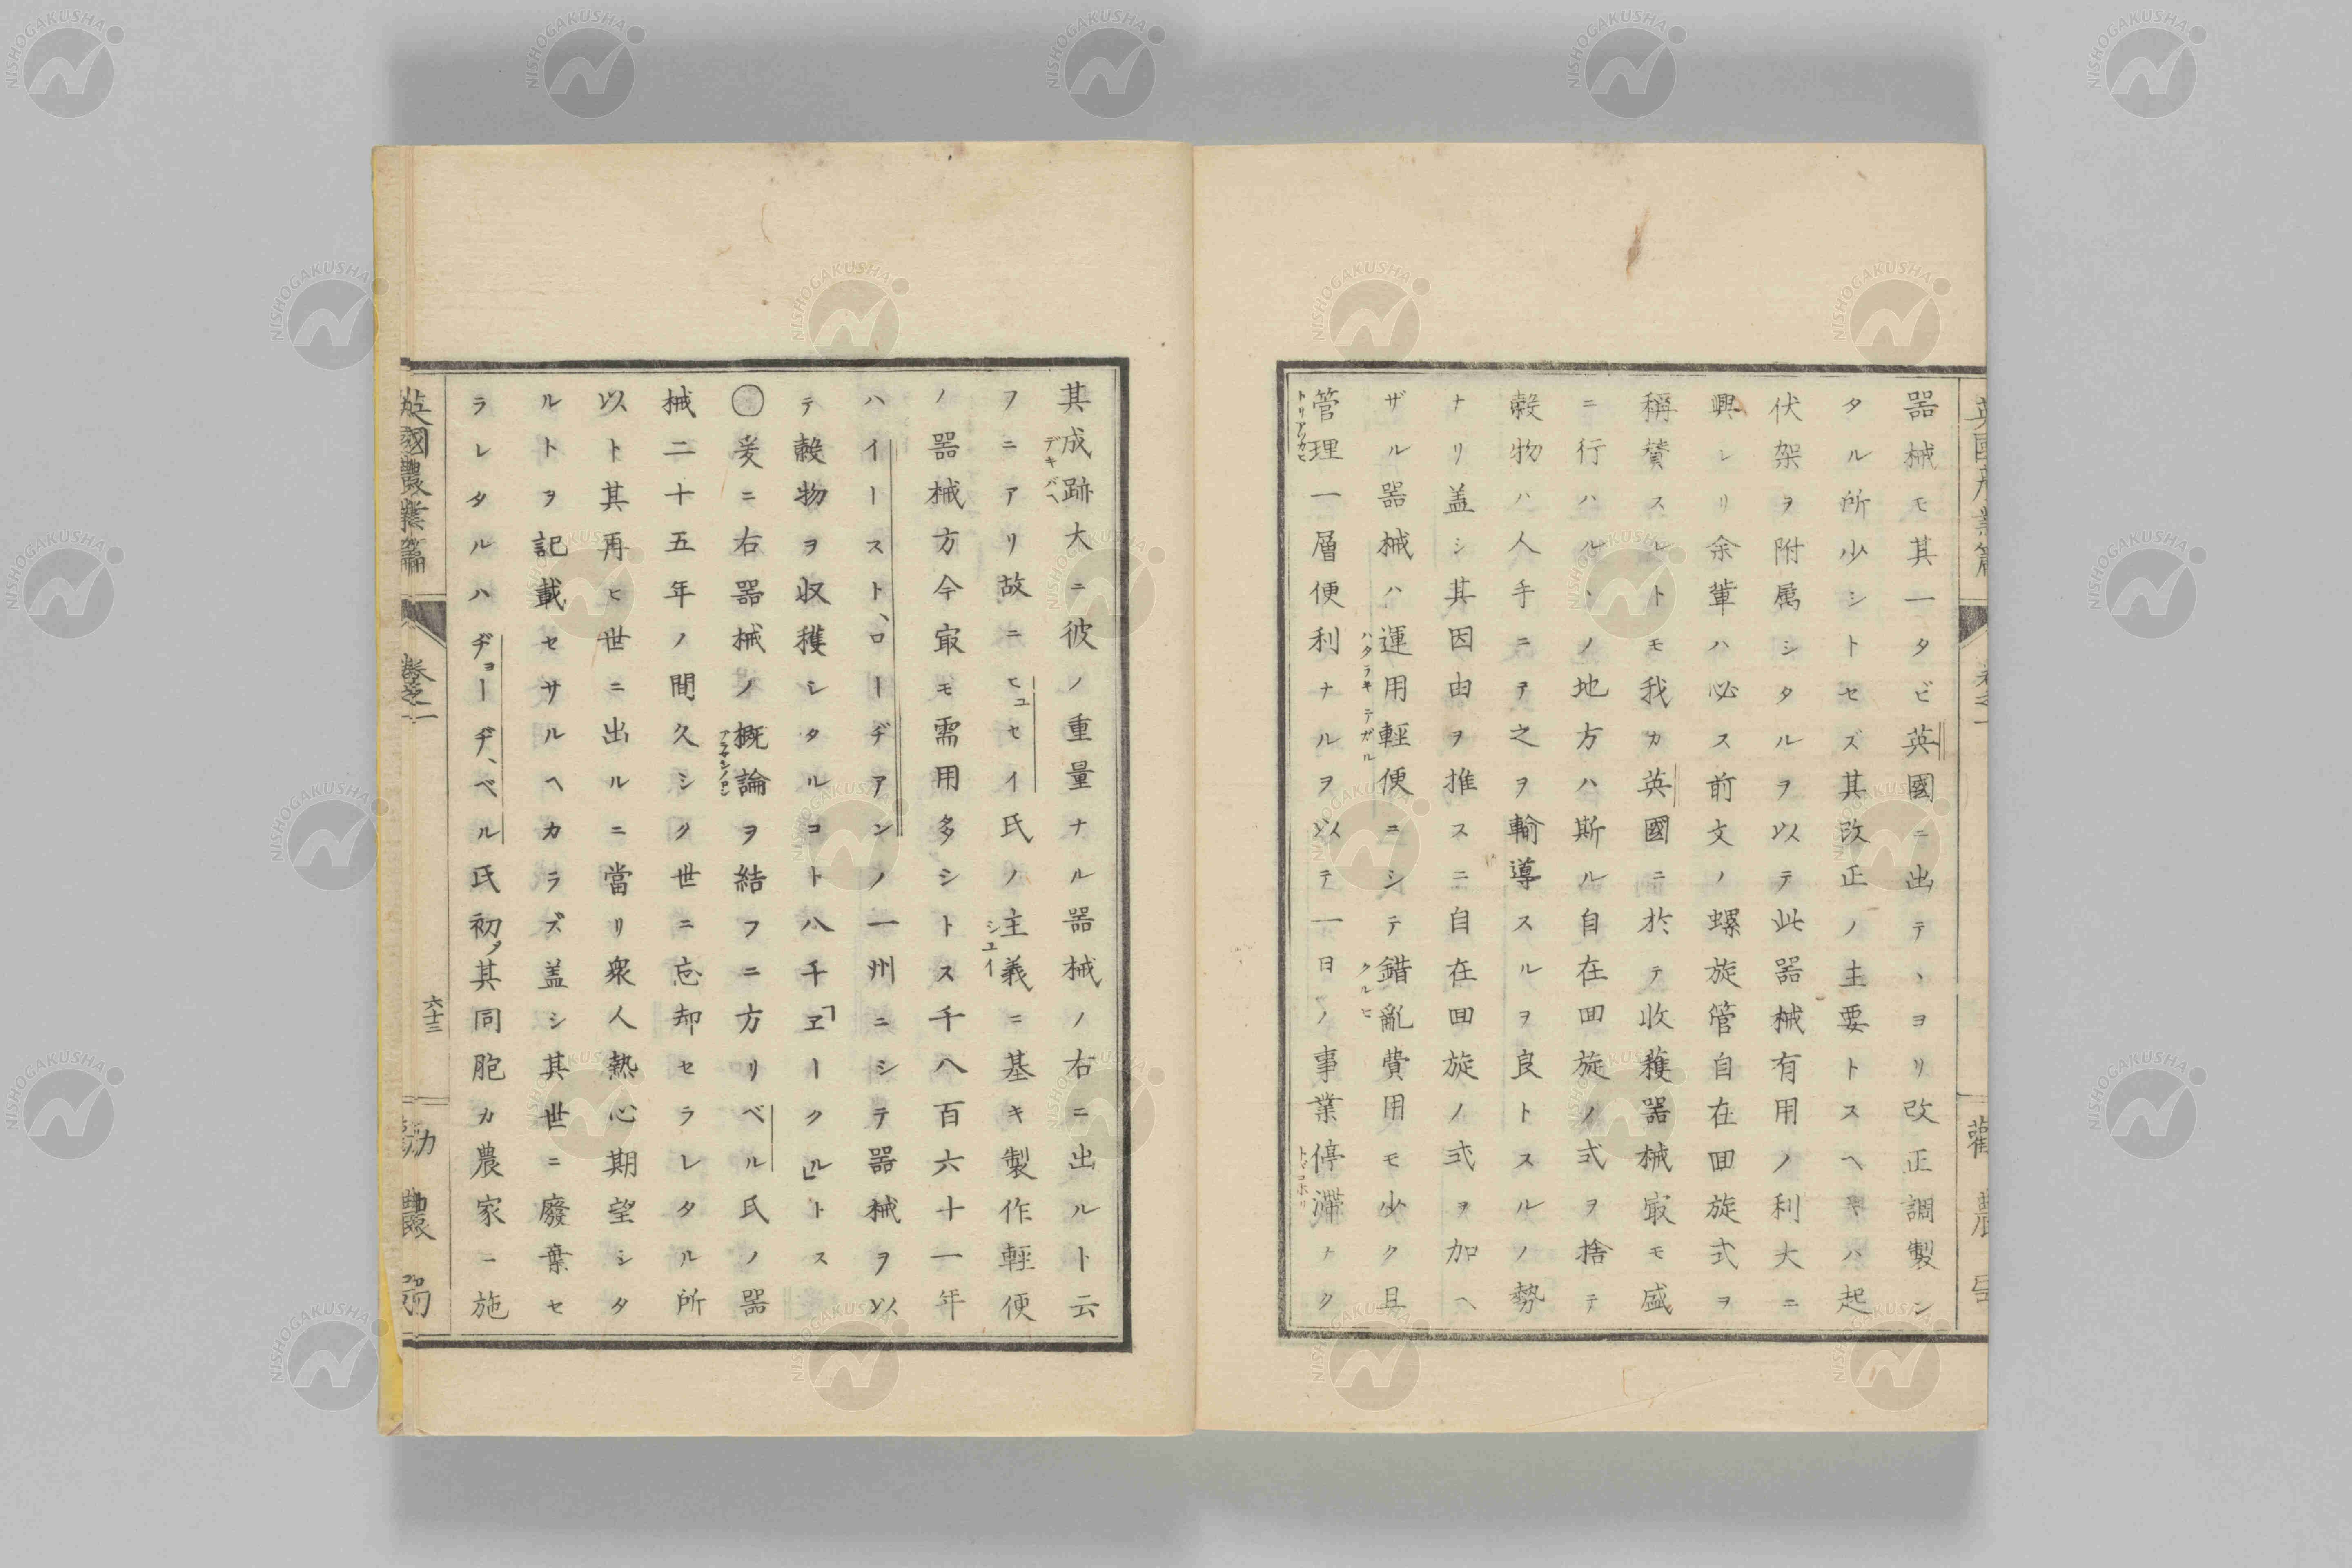 器械モ其一タビ英國ニ出テヽヨリ改正調製シ
タル所少シトセズ其改正ノ主要トスヘキハ起
伏架ヲ附属シタルヲ以テ此器械有用ノ利大ニ
興レリ余輩ハ必ス前文ノ螺旋管自在回旋式ヲ
稱賛スレトモ我カ英國ニ於テ收穫器械㝡モ盛
ニ行ハルヽノ地方ハ斯ル自在回旋ノ式ヲ捨テ
穀物ハ人手ニテ之ヲ輸導スルヲ良トスルノ勢
ナリ盖シ其因由ヲ推スニ自在回旋ノ式ヲ加ヘ
ザル器械ハ運用輕便ニシテ錯亂費用モ少ク且
ハタラキ テガル クルヒ
管理一層便利ナルヲ以テ一日ノ事業停滞ナク
トリアツカヒ
其成跡大ニ彼ノ重量ナル器械ノ右ニ出ルト云
デキバヘ
フニアリ故ニヒユセイ氏ノ主義ニ基キ製作輕便
シユイ
ノ器械方今㝡モ需用多シトス千八百六十一年
ハイースト、ローヂアンノ一州ニシテ器械ヲ以
テ穀物ヲ収穫シタルコト八千「ヱークル」トス
〇爰ニ右器械ノ概論ヲ結フニ方リベル氏ノ器
械二十五年ノ間久シク世ニ忘却セラレタル所
以ト其再ヒ世ニ出ルニ當リ衆人熱心期望シタ
ルトヲ記載セサルヘカラズ盖シ其世ニ廢棄セ
ラレタルハヂョーヂ、ベル氏初ノ其同胞カ農家ニ施
英國農業篇 卷之二 六十三